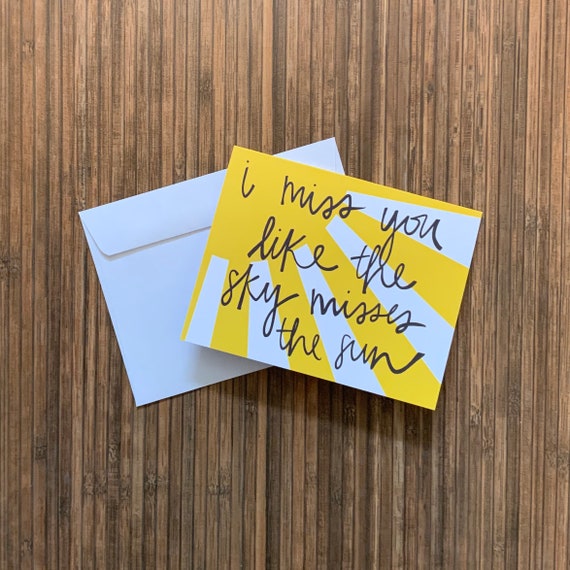 i miss you
like the
sky misses
the sun